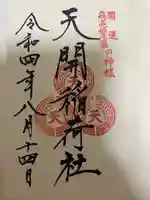 開運
の神様
天開稲荷社
令和四年八月十四日
天
天